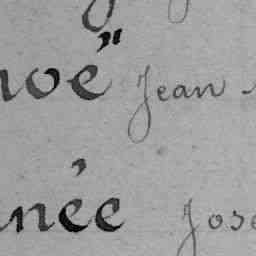 noë" Jean
née Jose